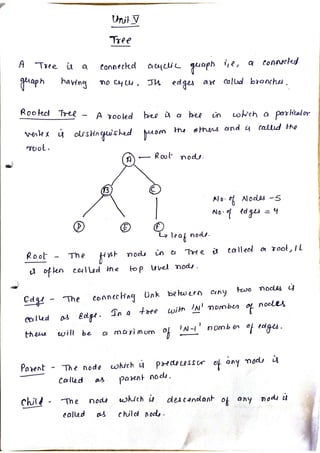 Unit V
Tree
A Tree is a connected acyclic graph i,e, a connected
graph having no cycle. Its edges are called branches.
Rooted Tree - A rooted tree is a tree in which a particular
vertex is distinguished from the others and is called the
root.
A ← Root node.
B C
No. of Nodes - 5
No. of edges = 4
D E F
↳ leaf node.
Root - The first node in a Tree is called a root, It
is often called the top level node.
Edge - The connecting link between any two nodes is
called as Edge. In a tree with 'N' number of nodes
there will be a maximum of 'N-1' number of edges.
Parent - The node which is predecessor of any node is
called as parent node.
Child - The node which is descendant of any node is
called as child node.